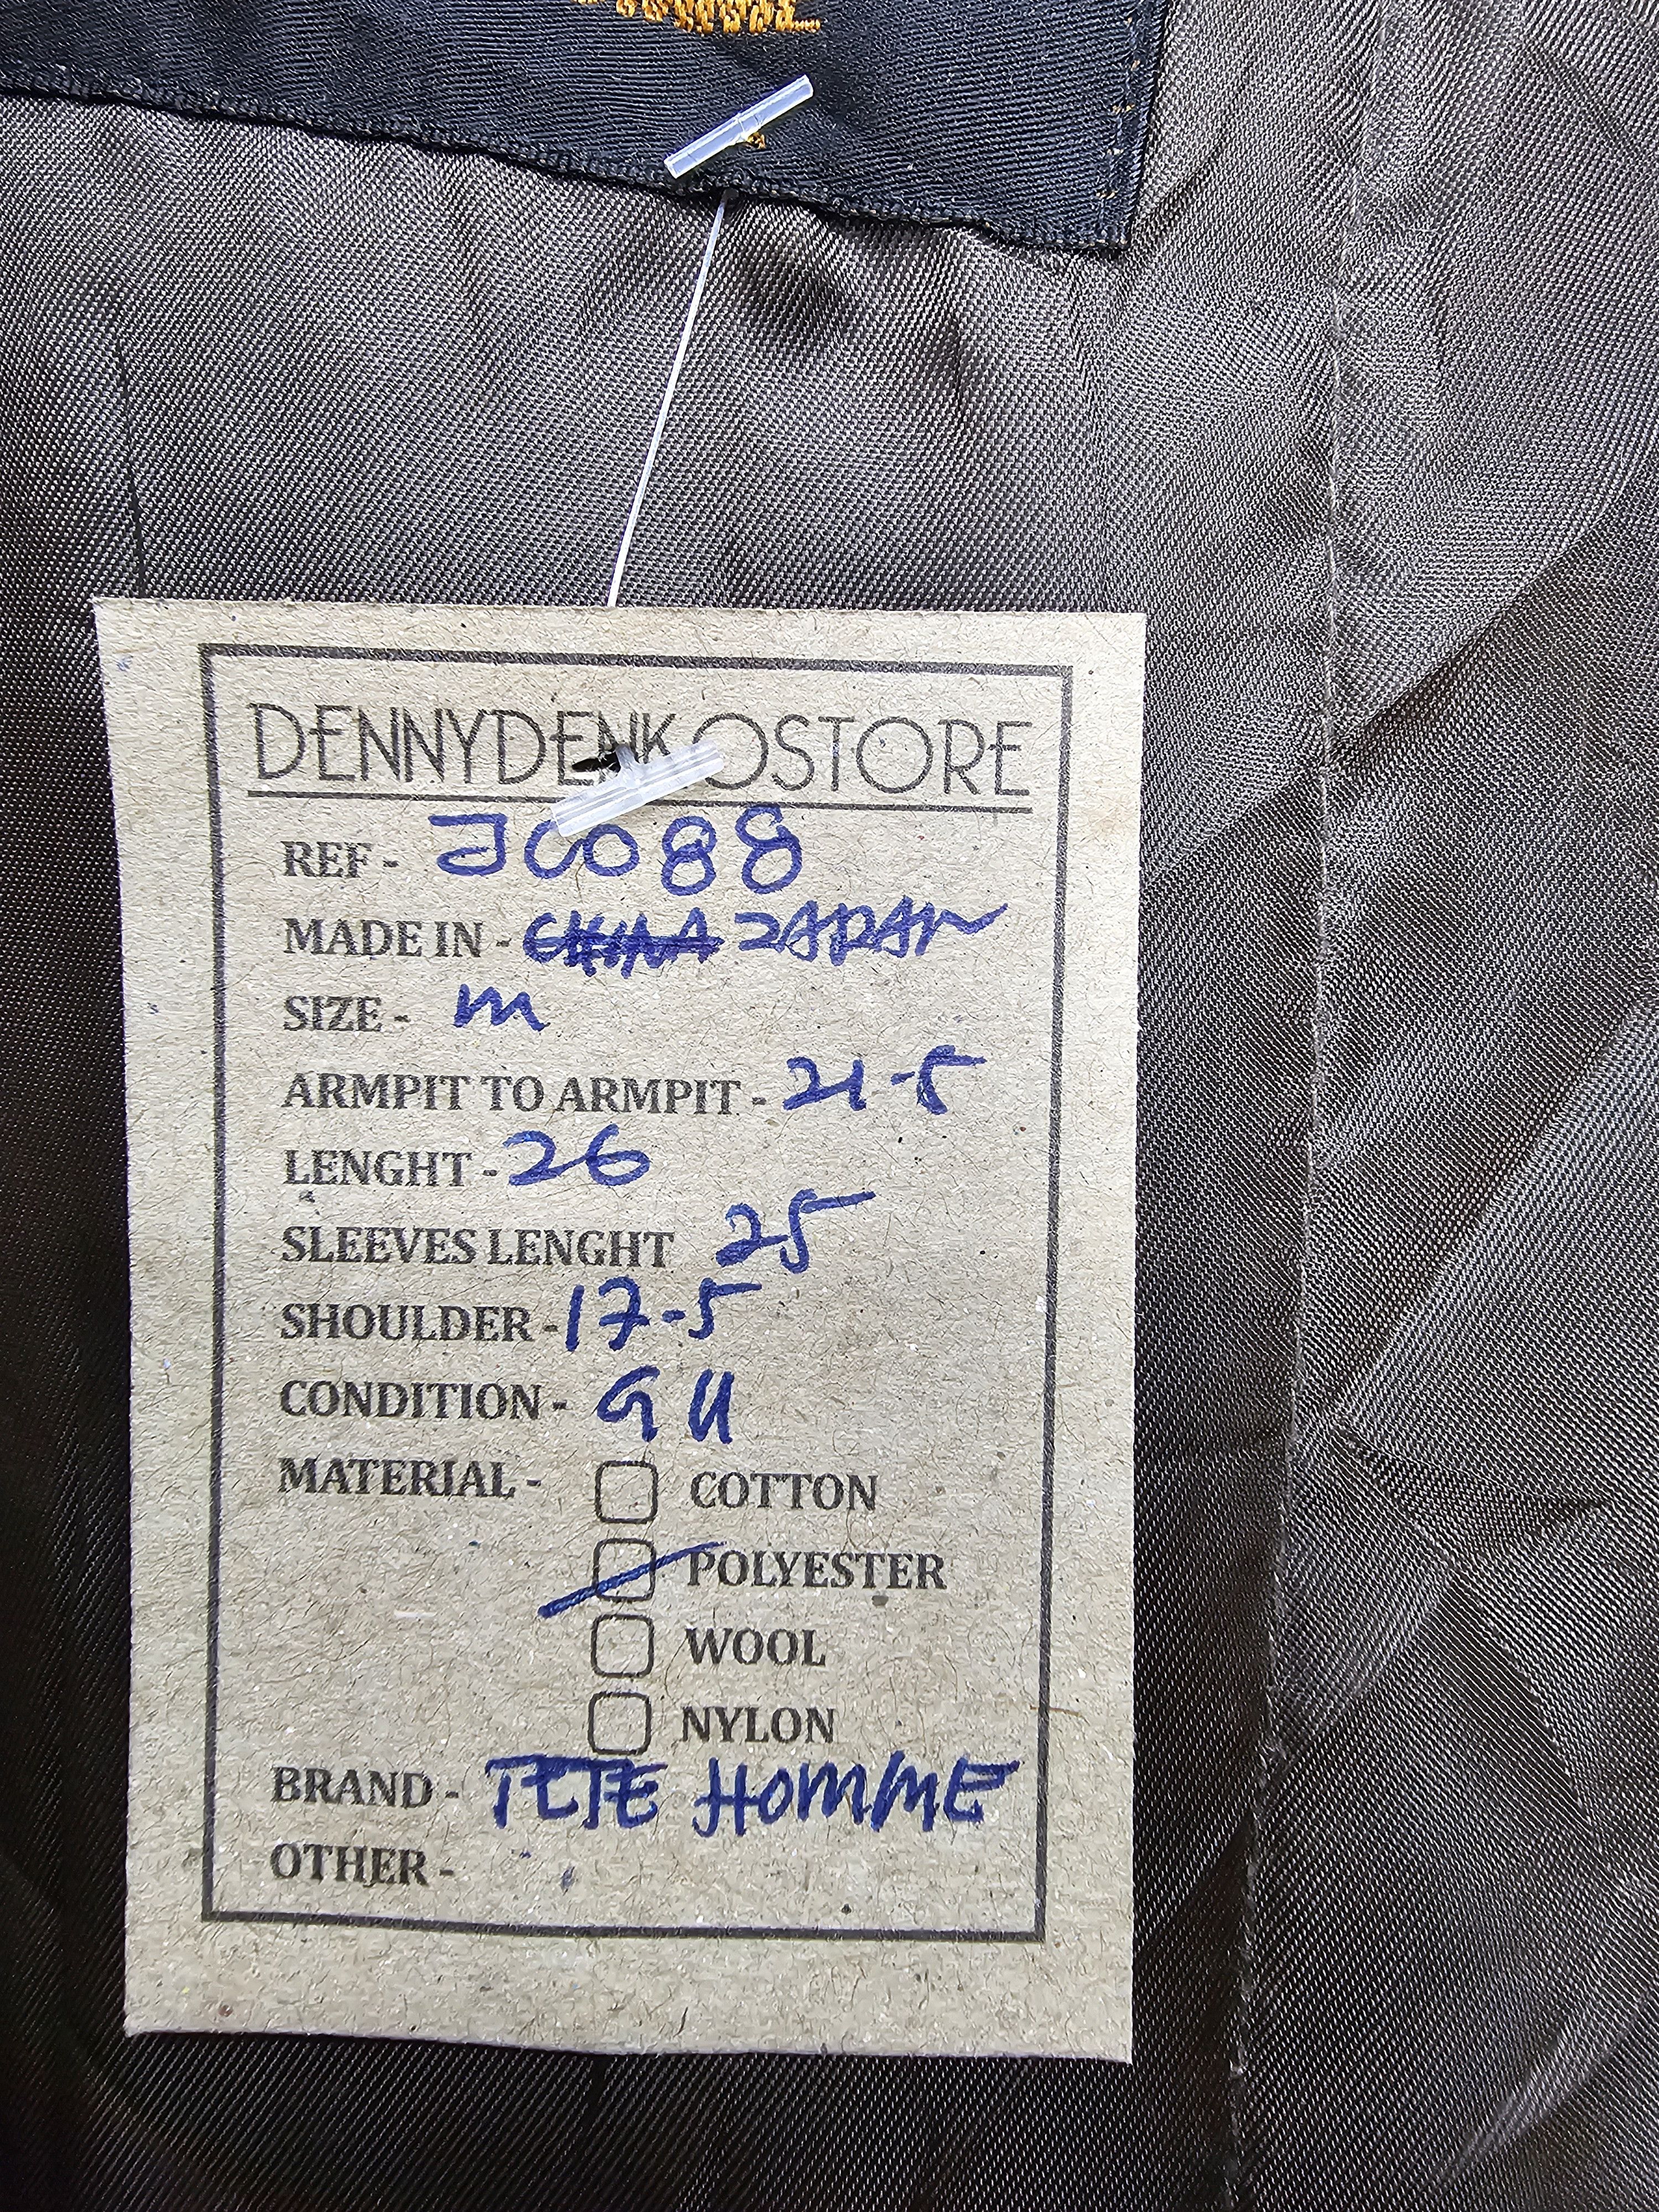 DENNYDENKOSTORE
REF - JC088
MADE IN - CHINA JAPAN
SIZE - M
ARMPIT TO ARMPIT - 21-5
LENGHT - 26
SLEEVES LENGHT 25
SHOULDER - 17-5
CONDITION - GU
MATERIAL - COTTON
POLYESTER
WOOL
NYLON
BRAND - PETE HOMME
OTHER -